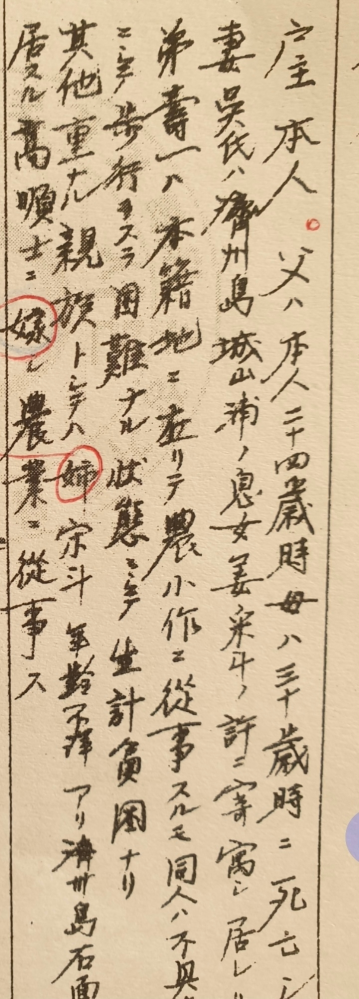 戸主 本人 父ハ本人二十四歳時母ハ三十歳時ニ死亡シ
妻吳氏ハ濟州島城山浦ノ息女姜采斗ノ許ニ寄寓シ居レリ
弟壽一ハ本籍地ニ在リテ農小作ニ從事スルモ同人ハ不具
ニシテ歩行スラ困難ナル状態ニシテ生計貧困ナリ
其他重ナル親族トシテハ姉宗斗年齡不詳アリ濟州島右面
居スル高順士ニ嫁シ農業ニ從事ス